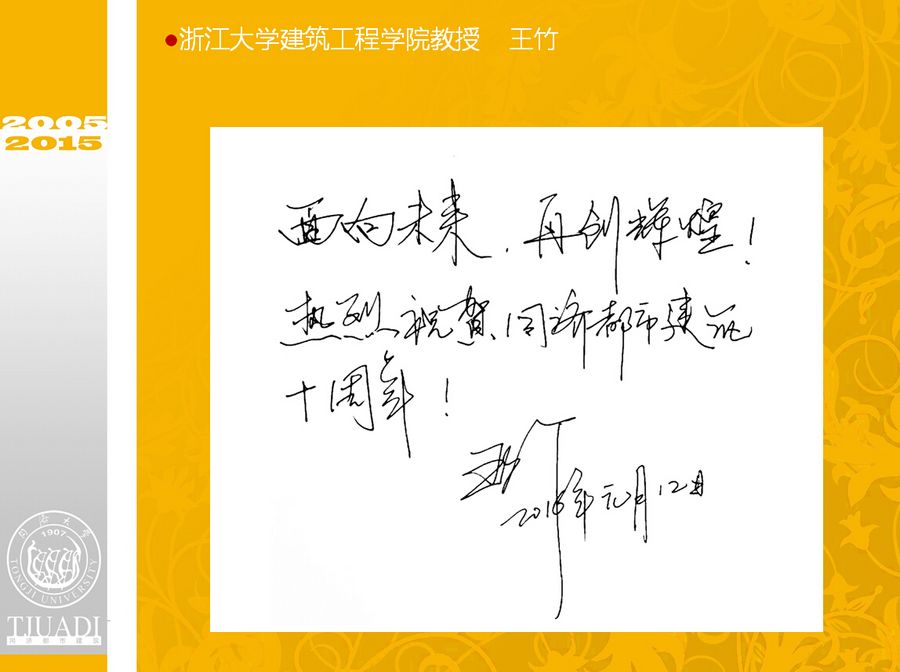 ●浙江大学建筑工程学院教授 王竹
2005
2015
面向未来，再创辉煌！
热烈祝贺同济都市建筑
十周年！
王竹
2016年元月12日
同济大学
1907
TONGJI UNIVERSITY
TJUADI
同济都市建筑